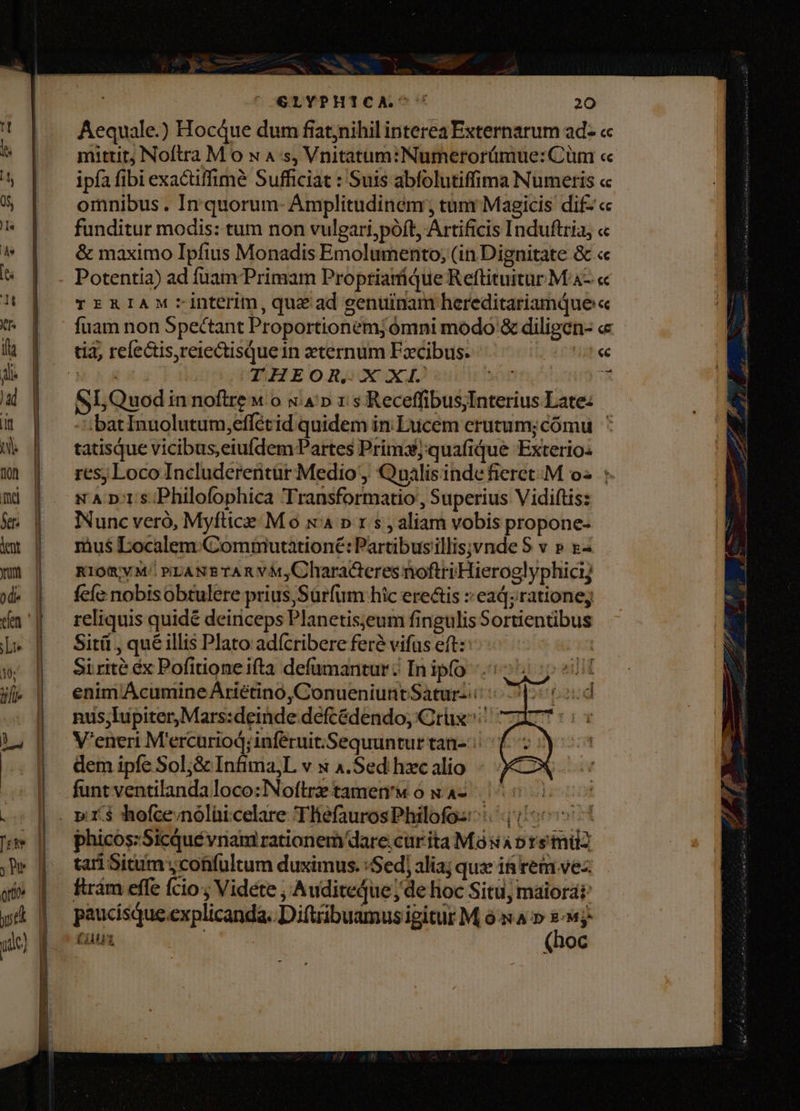 GLYPHICA. 20
Aequale.) Hocque dum fiat, nihil interea Externarum ad- «
mittit, Noſtra MONAS, Vnitatum: Numerorúmue: Cùm «
ipſa ſibi exactiſſimè Sufficiat: Suis abſolutiſſima Numeris «
omnibus. In quorum Amplitudinem, tùm Magicis dif- «
funditur modis: tum non vulgari, pòſt, Artificis Induſtria, «
& maximo Ipſius Monadis Emolumento, (in Dignitate & «
Potentia) ad ſuam Primam Propriamque Reſtituitur MA- «
TERIAM: interim, quæ ad genuinam hereditariamque «
ſuam non Spectant Proportionem, omni modo & diligen- «
tia, reſectis, reiectisque in æternum Fæcibus. «
THEOR. XXI.
SI, Quod in noſtræ MONADIS Receſſibus, Interius Late-
bat Inuolutum, effetid quidem in Lucem erutum; cómu
tatisque vicibus, eiuſdem Partes Primæ, quaſique Exterio-
res, Loco Includerentur Medio, Qualis inde fieret MO-
NADIS Philoſophica Transformatio, Superius Vidiſtis:
Nunc verò, Myſticæ MONADIS, aliam vobis propone-
mus Localem Commutationē: Partibus illis, vnde SVPE-
RIORVM PLANETARVM, Characteres noſtri Hieroglyphici,
ſeſe nobis obtulere prius, Surſum hìc erectis: eaq; ratione,
reliquis quidē deinceps Planetis, eum ſingulis Sortientibus
Sitū, quē illis Plato adſcribere ferè viſus eſt:
Si ritè ex Poſitione iſta deſumantur: In ipſo
enim Acumine Arietino, Conueniunt Satur-
nus, Iupiter, Mars: deinde deſcēdendo, Crux
Veneri Mercurioq; inſeruit. Sequuntur tan-
dem ipſe Sol, & Infima, LVNA. Sed hæc alio
ſunt ventilanda loco: Noſtræ tamen MONA-
DIS hoſce nòlui celare Theſauros Philoſo-
phicos: Sicque vnam rationem dare, cur ita MONADIS mu-
tari Situm, conſultum duximus. Sed, alia, quæ in rem ve-
ſtram eſſe ſcio, Videte, Auditeque, de hoc Situ, maiora,
paucisque explicanda. Diſtribuamus igitur MONADEM,
(hoc